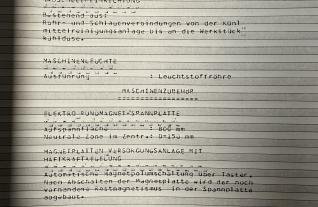 Bestehend aus:
Rohr- und Schlauchverbindungen von der Kühl-
mittelreinigungsanlage bis an die Werkstück-
kühldüse.
MASCHINENLEUCHTE
Ausführung : Leuchtstoffröhre
MASCHINENZUBEHÖR
ELEKTRO RUNDMAGNET-SPANNPLATTE
Aufspannfläche : 800 mm
Neutrale Zone im Zentr.: D=150 mm
MAGNETPLATTEN VERSORGUNGSANLAGE MIT
HAFTKRAFTREGELUNG
Automatische Magnetpolumschaltung über Taster.
Nach Abschalten der Magnetplatte wird der noch
vorhandene Restmagnetismus in der Spannplatte
abgebaut.